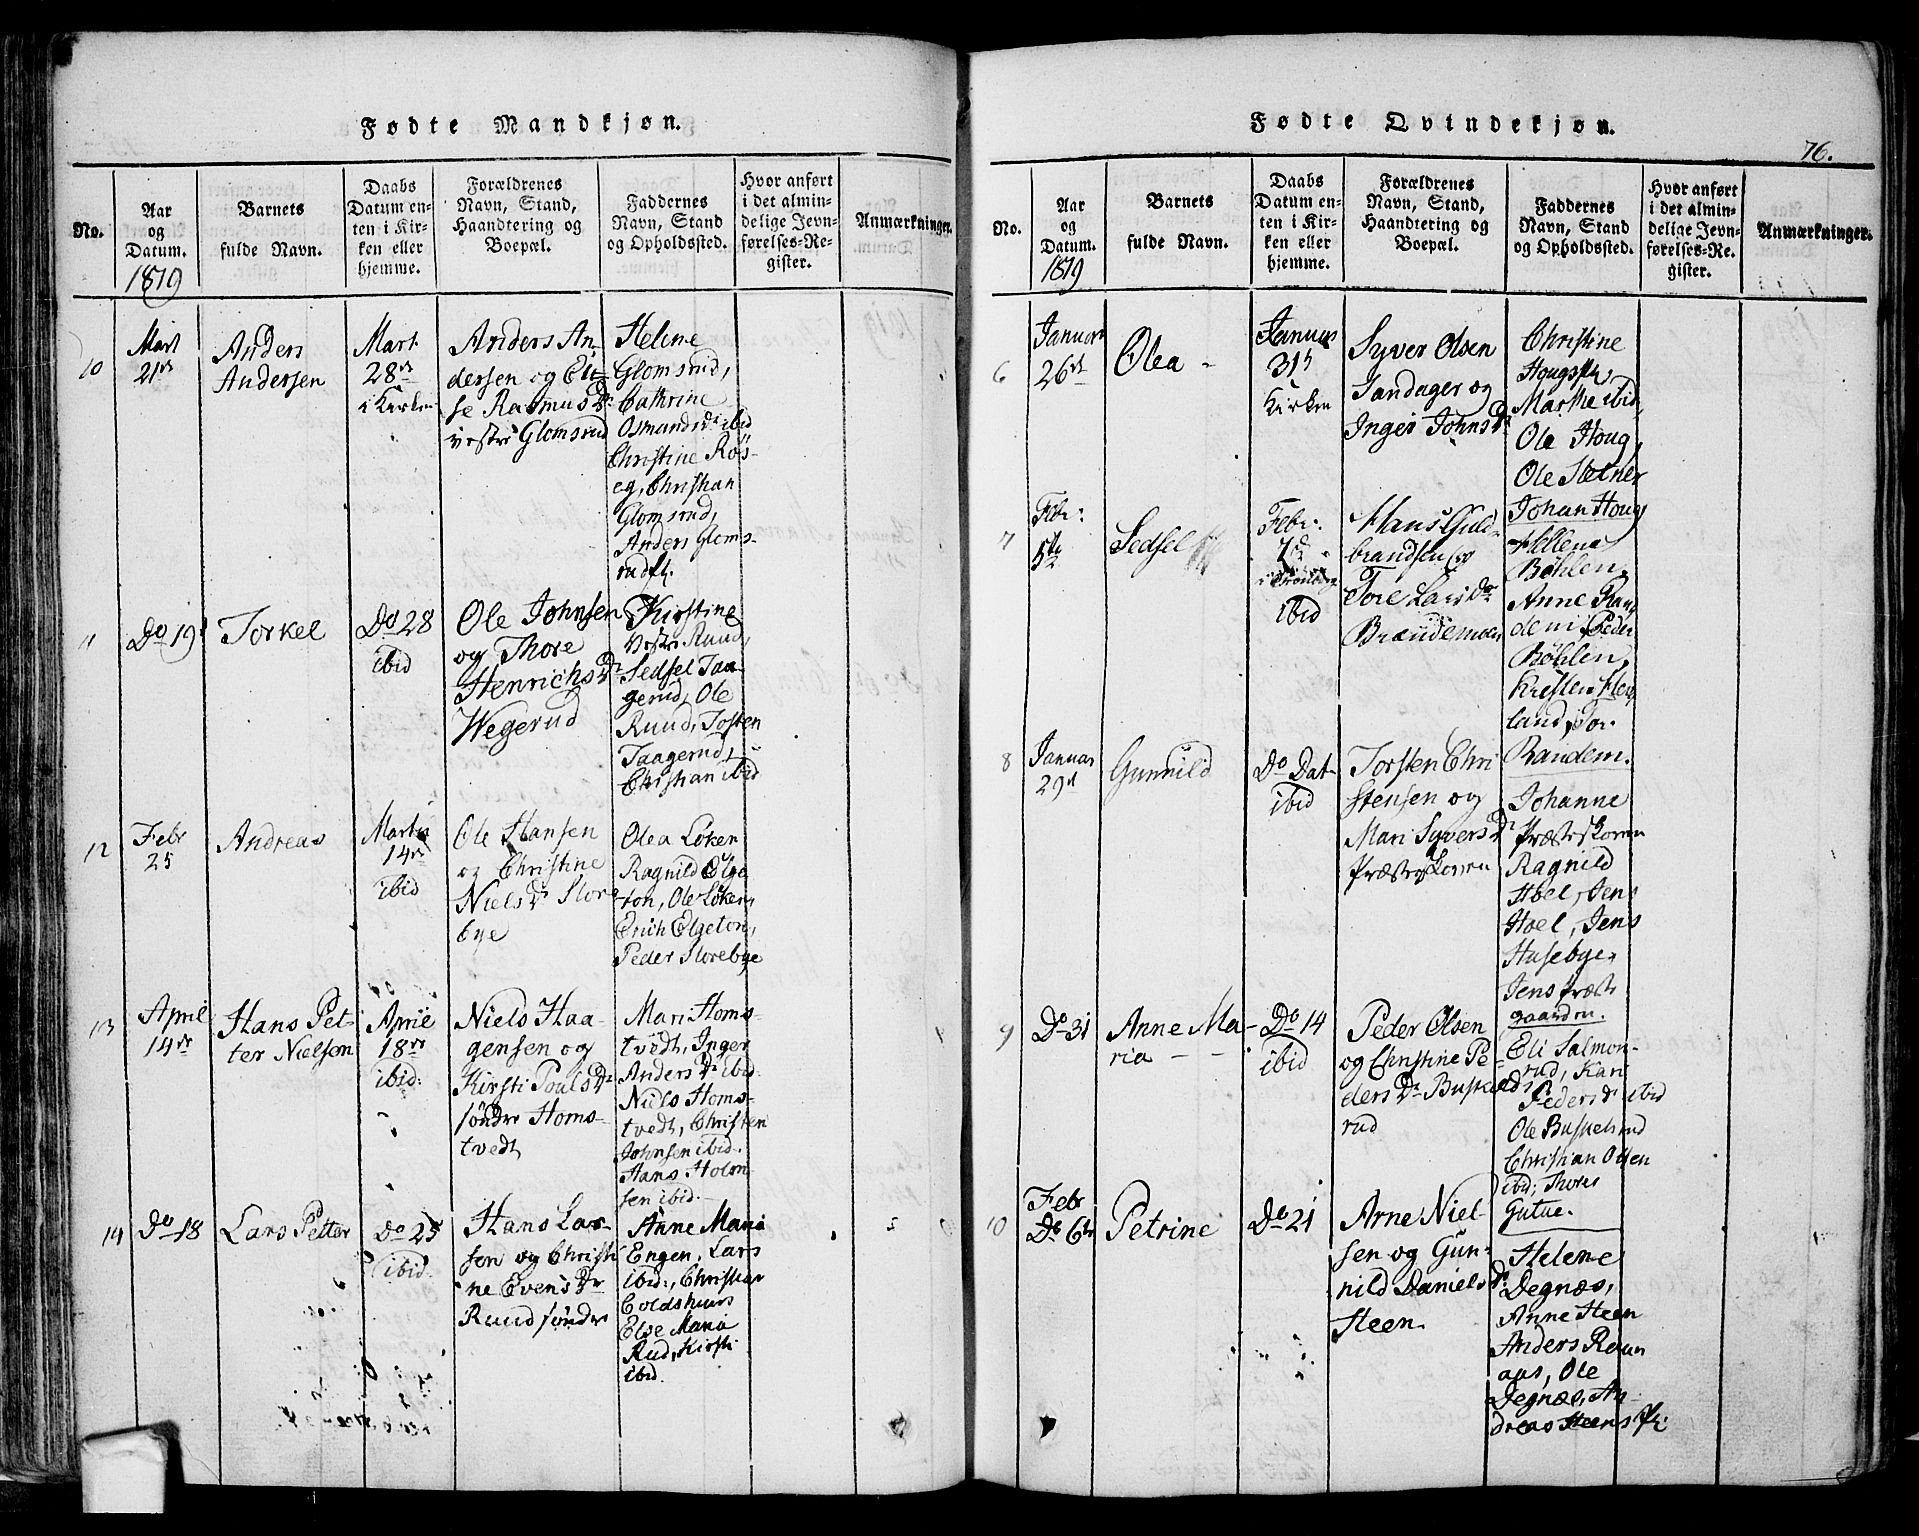 Fødte Mandkjøn.
No.
Aar
og
Datum.
1819
Barnets
fulde Navn.
Daabs
Datum en-
ten i Kir-
ken eller
hjemme.
Forældrenes
Navn, Stand,
Haandtering og
Boepæl.
Faddernes
Navn, Stand
og Opholdssted.
Hvor anført
i det almin-
delige Jevn-
førelses-Re-
gister.
Anmærkninger.
10
Mart
21de
Anders
Andersen
Mart
28de
i Kirken
Anders An
dersen og Eli
se Rasmus Dr
vestre Glomsrud
Helene
Glomsrud,
Cathrine
Osmands Dr ibid
Christine Røs-
eg, Christian
Glomsrud,
Anders Gloms-
rud
11
Do 19
Torkel
Do 28
ibid
Ole Johnsen
og Thore
Henrichs Dr
Wegerud
Kirstine
vestre Ruud,
Sedsel Taa-
gerud, Ole
Ruud, Tosten
Taagerud,
Christian ibid
12
Febr
25
Andreas
Martii
14de
ibid
Ole Hansen
og Christine
Niels Dr Store
bye
Olea Løken
Ragnild Elge
ton, Ole Løken,
Erich Elgeton,
Peder Storebye
13
April
14de
Hans Pet-
ter Nielsen
April
18de
ibid:
Niels Haa-
gensen og
Kirsti Pouls Dr
søndre Homs-
tvedt
Mari Homs-
tvedt, Inger
Anders Dr ibid
Niels Homs-
tvedt, Christen
Johnsen ibid.
Hans Holm-
sen ibid.
14
Do 18
Lars Petter
Do 25
ibid.
Hans Lar-
sen og Christi
ne Evens Dr
Ruud søndre
Anne Maria
Engen, Lars
ibid:, Christian
Coldshuus
Else Maria
Rud, Kirsti
ibid.
Fødte Qvindekjøn.
76.
No.
Aar
og
Datum.
1819
Barnets
fulde Navn.
Daabs
Datum en-
ten i Kir-
ken eller
hjemme.
Forældrenes
Navn, Stand,
Haandtering og
Boepæl.
Faddernes
Navn, Stand
og Opholdssted.
Hvor anført
i det almin-
delige Jevn-
førelses-Re-
gister.
Anmærkninger.
6
Januar
26de
Olea -
Januar
31
Kirken
Syver Olsen
Sandager og
Inger Johns Dr
Christine
Marthe ibid,
Ole Houg,
Ole Sletner
Johan Houg
7
Febr:
5te
Sedsel
Febr:
7de
ibid
Hans Guld
brandsen og
Tore Lars Dr
Brændemoen
Hellena
Bøhlen,
Anne Ran
dem, Peder
Bøhlen,
Kresten Hey
land, Tor
Randem.
8
Januar
29de
Gunnild
Do Dat
ibid
Torsten Chri
stensen og
Mari Syvers Dr
Præsteskoven
Johanne
Præsteskoven
Ragnild
Hoel, Jens
Hoel, Jens
Husebye,
Jens Præste
gaarden.
9
Do 31
Anne Ma-
ria
Do 14
ibid
Peder Olsen
og Christine Pe-
ders Dr Buskeds
rud
Eli Salmon-
rud, Kari
Peders Dr ibid
Ole Buskelsrud
Christian Olsen
ibid, Thores
Gutue.
10
Febr
Do 6te
Petrine
Do 21
Arne Niel-
sen og Gun-
nild Daniels Dr
Steen.
Helene
Degnæs,
Anne Steen
Anders Raun
aas, Ole
Degnæs, An-
dreas Steens